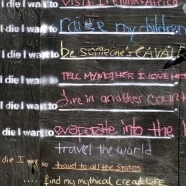 I die I want to visit
I die I want to raise my children
I die I want to be someone's CAVAL
I die I want to TELL MY MOTHER I LOVE HE
I die I want to live in another coun
I die I want to evaporate into the
travel the world
die I to travel to all the States
find my mythical creature